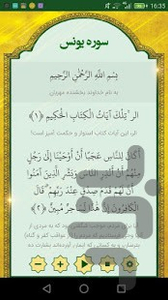 16:35
سوره یونس
بِسْمِ اللَّهِ الرَّحْمَنِ الرَّحِيمِ
به نام خداوند بخشنده مهربان
الر تِلْكَ آيَاتُ الْكِتَابِ الْحَكِيمِ ﴿١﴾
الر، این آیات کتاب استوار و حکمت آمیز است!
أَكَانَ لِلنَّاسِ عَجَبًا أَنْ أَوْحَيْنَا إِلَى رَجُلٍ
مِنْهُمْ أَنْ أَنْذِرِ النَّاسَ وَبَشِّرِ الَّذِينَ آمَنُوا
أَنَّ لَهُمْ قَدَمَ صِدْقٍ عِنْدَ رَبِّهِمْ قَالَ
الْكَافِرُونَ إِنَّ هَذَا لَسَاحِرٌ مُبِينٌ ﴿٢﴾